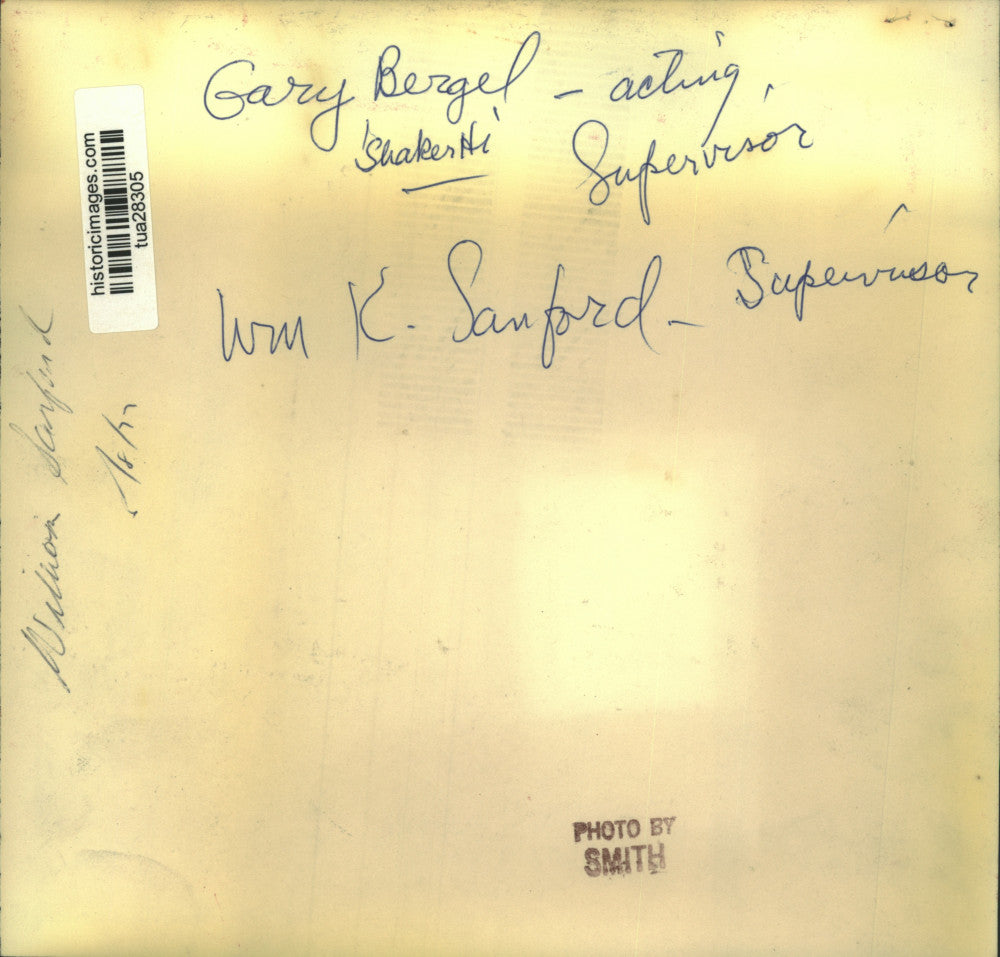 Gary Bergel – acting
'Shaker Hi'
Supervisor
Wm K. Sanford – Supervisor
historicimages.com
tua28305
William Sanford
PHOTO BY
SMITH